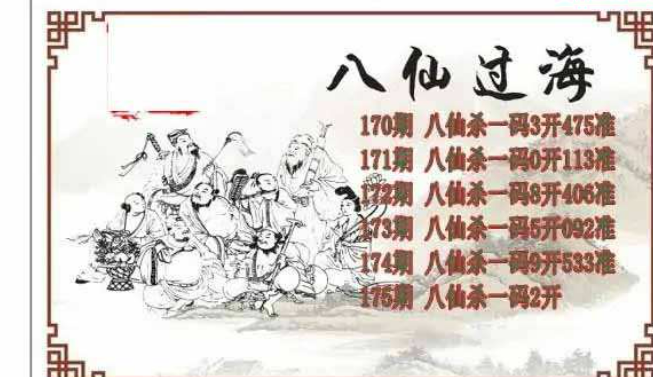 八仙过海
170期 八仙杀一码3开475准
171期 八仙杀一码0开113准
172期 八仙杀一码8开406准
173期 八仙杀一码5开092准
174期 八仙杀一码9开533准
175期 八仙杀一码2开